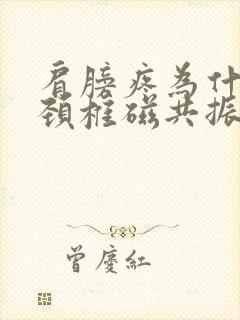 肩膀疼為什
頸椎磁共振
曾慶紅